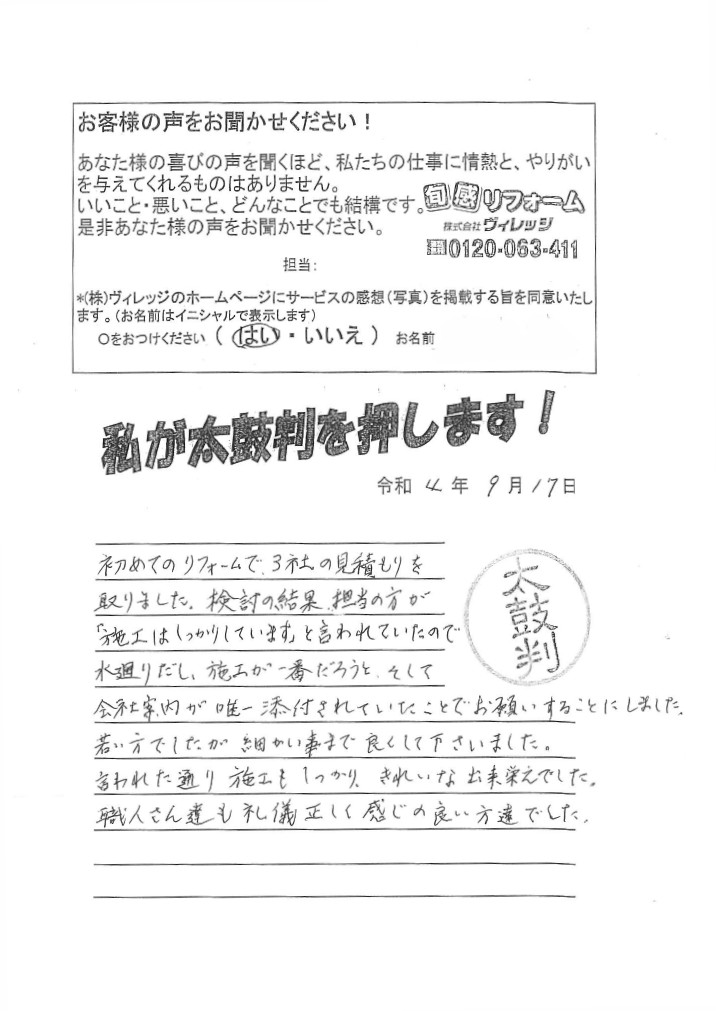 お客様の声をお聞かせください！
あなた様の喜びの声を聞くほど、私たちの仕事に情熱と、やりがい
を与えてくれるものはありません。
いいこと・悪いこと、どんなことでも結構です。
是非あなた様の声をお聞かせください。
旬感リフォーム
株式会社ヴィレッジ
0120-063-411
担当：
*(株)ヴィレッジのホームページにサービスの感想(写真)を掲載する旨を同意いたし
ます。(お名前はイニシャルで表示します)
○をおつけください ( はい ・ いいえ ) お名前
私が太鼓判を押します！
令和 4 年 9 月 17 日
初めてのリフォームで、3社の見積もりを
取りました。検討の結果、担当の方が
「施工はしっかりしています」と言われていたので
水廻りだし、施工が一番だろうと、そして
会社案内が唯一添付されていたことでお願いすることにしました。
若い方でしたが細かい事まで良くして下さいました。
言われた通り施工もしっかり、きれいな出来栄えでした。
職人さん達も礼儀正しく感じの良い方達でした。
太鼓判